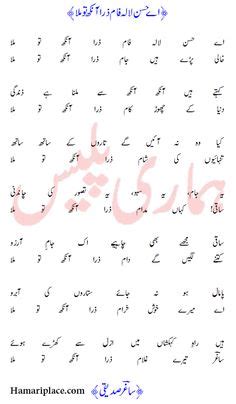 ﴿اے حسنِ لالہ فام ذرا آنکھ تو ملا﴾
اے حسن لالہ فام ذرا آنکھ تو ملا
خالی پڑے ہیں جام ذرا آنکھ تو ملا
کہتے ہیں آنکھ آنکھ سے ملنا ہے بندگی
دنیا کے چھوڑ کام ذرا آنکھ تو ملا
کیا وہ نہ آئیں گے تاروں کے ساتھ ساتھ
تنہائیوں کی شام ذرا آنکھ تو ملا
یہ جام، یہ سبو، یہ تصور کی چاندنی
ساقی کہاں مدام ذرا آنکھ تو ملا
ساقی مجھے بھی چاہیے اک جامِ آرزو
کتنے لگیں گے دام ذرا آنکھ تو ملا
پامال ہو نہ جائے ستاروں کی آبرو
اے میرے خوش خرام ذرا آنکھ تو ملا
ہیں راہِ کہکشاں میں ازل سے کھڑے ہوئے
ساغر تیرے غلام ذرا آنکھ تو ملا
﴿ساغر صدیقی﴾
Hamariplace.com
ہماری پلیس